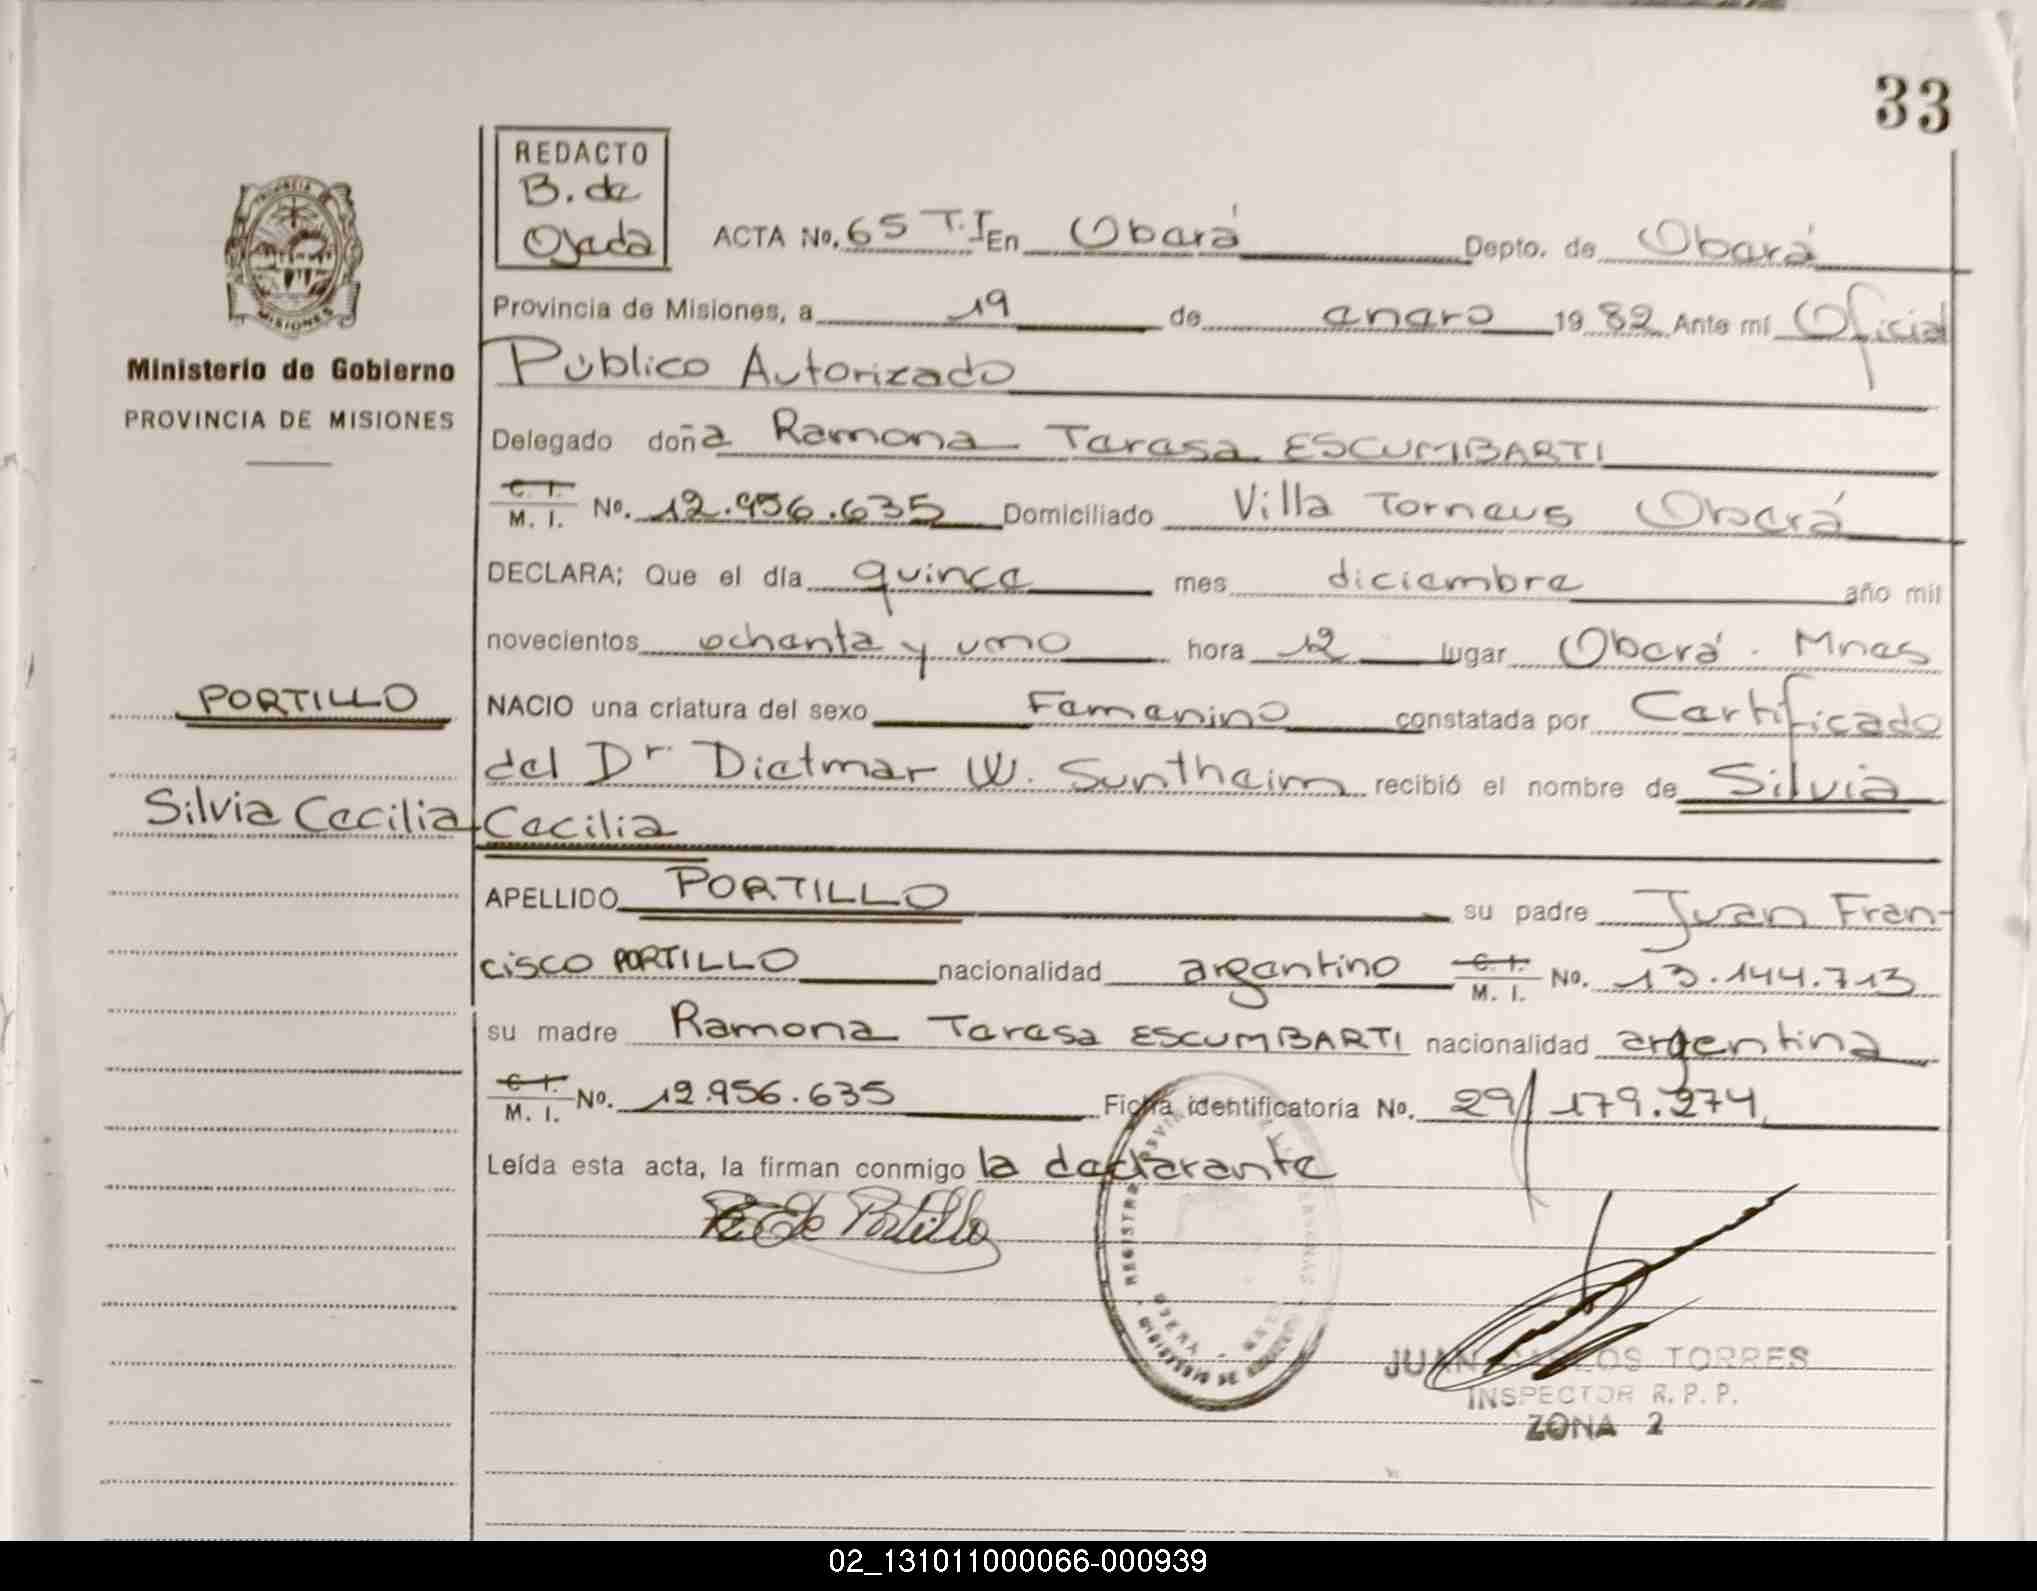 33
REDACTO
B. de
Ojeda
ACTA No. 65 T.I En Oberá Depto. de Oberá
Provincia de Misiones, a 19 de enero 1982 Ante mí Oficial
Público Autorizado
Ministerio de Gobierno
PROVINCIA DE MISIONES
Delegado doña Ramona Teresa ESCUMBARTI
C. I.
M. I. No. 12.956.635 Domiciliado Villa Torneus Oberá
DECLARA; Que el día quince mes diciembre año mil
novecientos ochenta y uno hora 12 lugar Oberá. Mnes
PORTILLO
NACIO una criatura del sexo Femenino constatada por Certificado
del Dr. Dietmar W. Suntheim recibió el nombre de Silvia
Silvia Cecilia
Cecilia
APELLIDO PORTILLO su padre Juan Fran-
cisco PORTILLO nacionalidad argentino C. I. M. I. No. 13.144.713
su madre Ramona Teresa ESCUMBARTI nacionalidad argentina
C. I.
M. I. No. 12.956.635 Ficha identificatoria No. 29/179.274
Leída esta acta, la firman conmigo la declarante
R. E de Portillo
JUAN CARLOS TORRES
INSPECTOR R. P. P.
ZONA 2
02_131011000066-000939